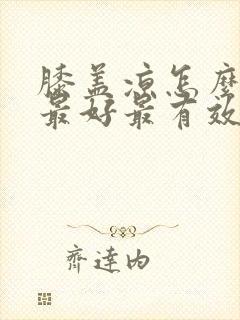 膝盖凉怎麽
最好最有效
齊達内